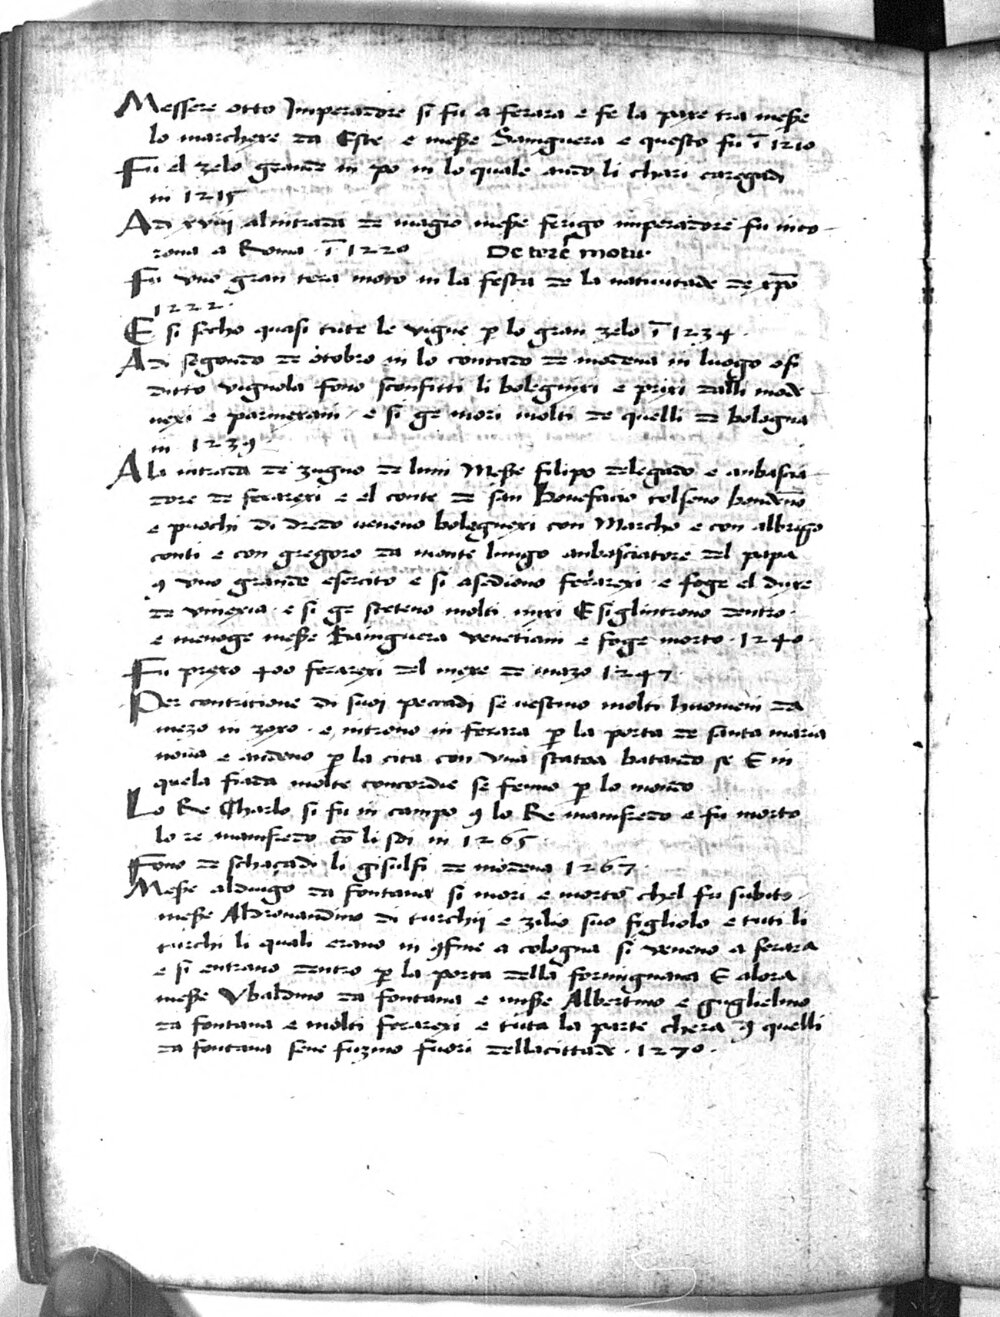 Messere otto Imperadore si fu a ferara e fe la paxe tra meße
lo marchexe da Este e meße Sainguera e questo fu ī 1210
Fu el zelo grande in po in lo quale ando li chari caregadi
in 1215
Adi xviii alintrada de magio meße ferigo imperadore fu inco
rona a Roma ī 1220 De tere motu.
Fu uno gran tera moto in la festa de la natiuitade de xpo
1222.
E si secho quasi tute le vigne p lo gran zelo ī 1234.
Adi segondo de otobro in lo contado de modena in luogo ofi
ditto vignola fono sconfitti li bolegnixi e prixi dalli mode
nexi e parmexani e si ge mori molti de quelli de bologna
in 1239.
Ala intrada de zugno de luni Meße filipo delegado e anbascia
dore de ferarexi e el conte de san Bonefacio tolseno bondeno
e puochi di dredo ueneno bolegnexi con Marcho e con albrigo
conti e con gregoro da monte lungo anbasciatore del papa
9 uno grande esercito e si asediono ferarexi e foge el duxe
de vinexia e si ge steteno molti mixi E siglintrono dentro
e menoge meße Sainguera venetiani e foge morto 1240
Fu prexo 400 ferarexi del mexe de mazo 1247.
Per contritione di suoi peccadi se uestino molti huomeni da
mezo in zoxo e introno in ferara p la porta de santa maria
noua e andeno p la cita con una scutoa batando se E in
quela fiada molte concordie se feno p lo mondo
Lo Re Charlo si fu in campo 9 lo Re manfredo e fu morto
lo re manfredo cō li soi in 1265.
Fono de schaçadi li gisulfi de modena 1267.
Meße alduigo da fontana si mori e morto chel fu subito
meße Aldrouandino di turchii e zilio suo figliolo e tuti li
turchi li quali erano in 9fine a cologna si veneno a ferara
e si entrano dentro p la porta della formignana E alora
meße Vbaldino da fontana e meße Albertino e guglielmo
da fontana e molti ferarexi e tuta la parte chera 9 quelli
da fontana sene fuzino fuori dellacittade. 1270.